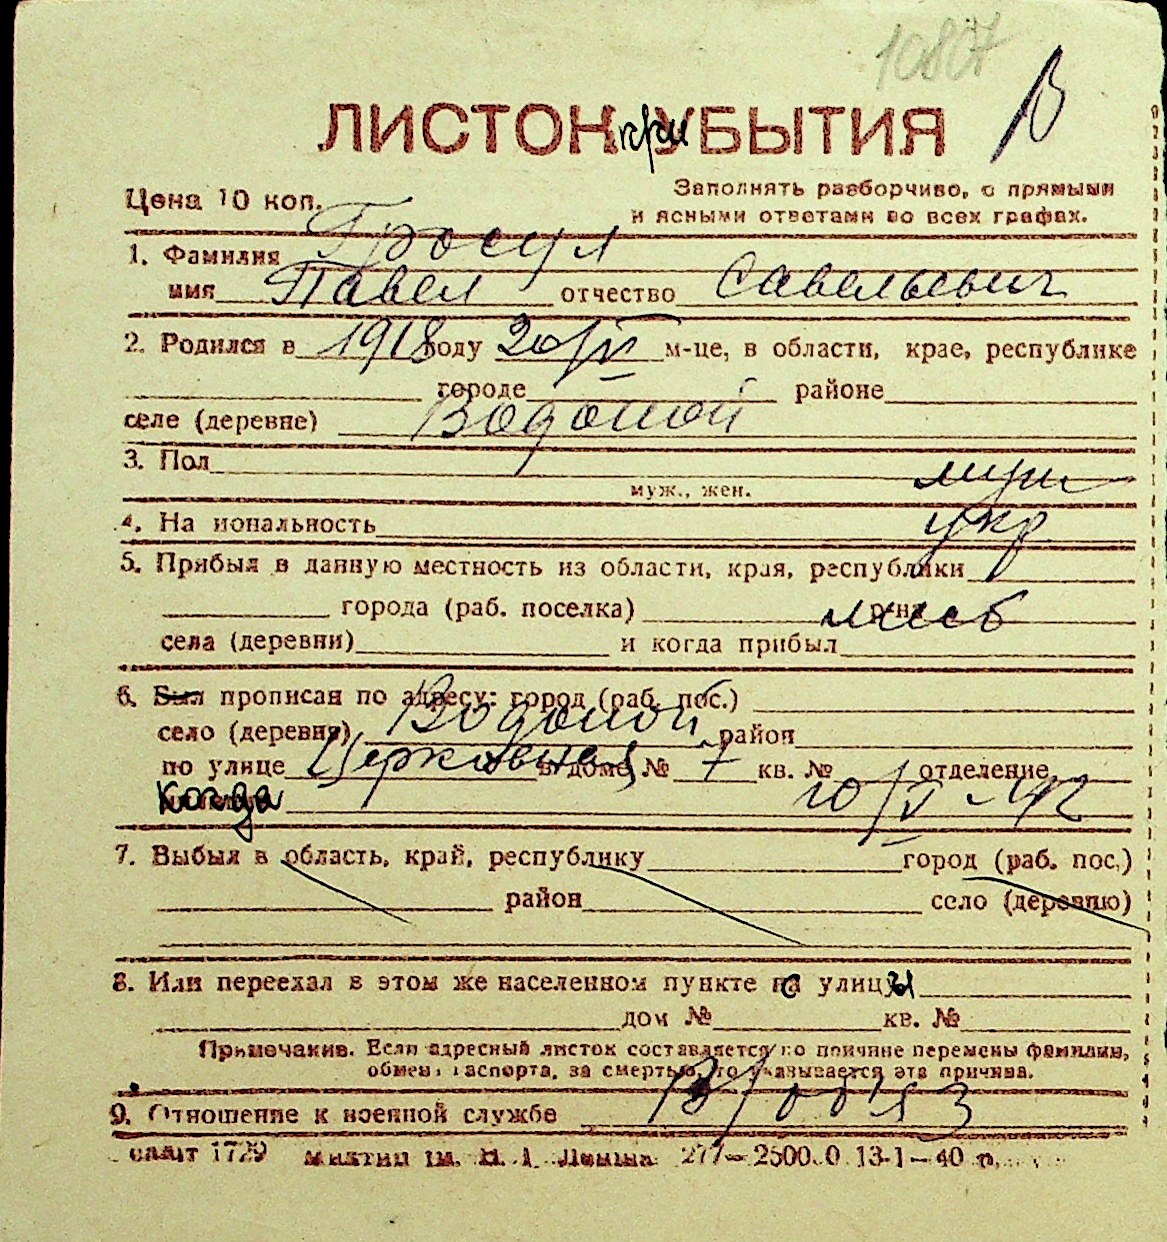 10807
В
ЛИСТОК при УБЫТИЯ
Цена 10 коп.
Заполнять разборчиво, с прямыми
и ясными ответами во всех графах.
1. Фамилия Гросул
имя Павел отчество Савельевич
2. Родился в 1918 году 20/IV м-це, в области, крае, республике
городе районе
селе (деревне) Водопой
3. Пол муж
муж., жен.
4. Национальность укр
5. Прибыл в данную местность из области, края, республики
города (раб. поселка) р-на
села (деревни) и когда прибыл
6. Был прописан по адресу: город (раб. пос.)
село (деревня) Водопой район
по улице Церковная в доме № 7 кв. № отделение
когда 10/V-42
7. Выбыл в область, край, республику город (раб. пос.)
район село (деревню)
8. Или переехал в этом же населенном пункте с улицы
дом № кв. №
Примечание. Если адресный листок составляется по причине перемены фамилии,
обмена паспорта, за смертью, то указывается эта причина.
9. Отношение к военной службе В/обяз
1729 им. Ленина 277—2500.0 13-1—40 п.